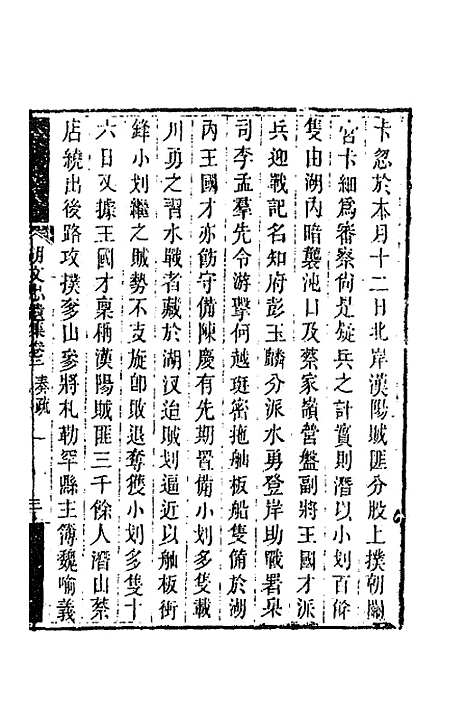 卡忽於本月十二日北岸漢陽賊匪分股上撲朝關
宮卡細爲審察尙是疑兵之計實則潛以小划百餘
隻由湖內暗襲沌口及蔡家嶺營盤副將王國才派
兵迎戰記名知府彭玉麟分派水勇登岸助戰署臬
司李孟羣先令游擊何越珽密拖舢板船隻備於湖
內王國才亦飭守備陳慶有先期習備小划多隻載
川勇之習水戰者藏於湖汊迨賊划逼近以舢板衝
鋒小划繼之賊勢不支旋卽敗退奪獲小划多隻十
六日又據王國才稟稱漢陽賊匪三千餘人潛山蔡
店繞出後路攻撲爹山參將札勒罕縣主簿魏喻義
胡文忠遺集卷三 奏疏一 三